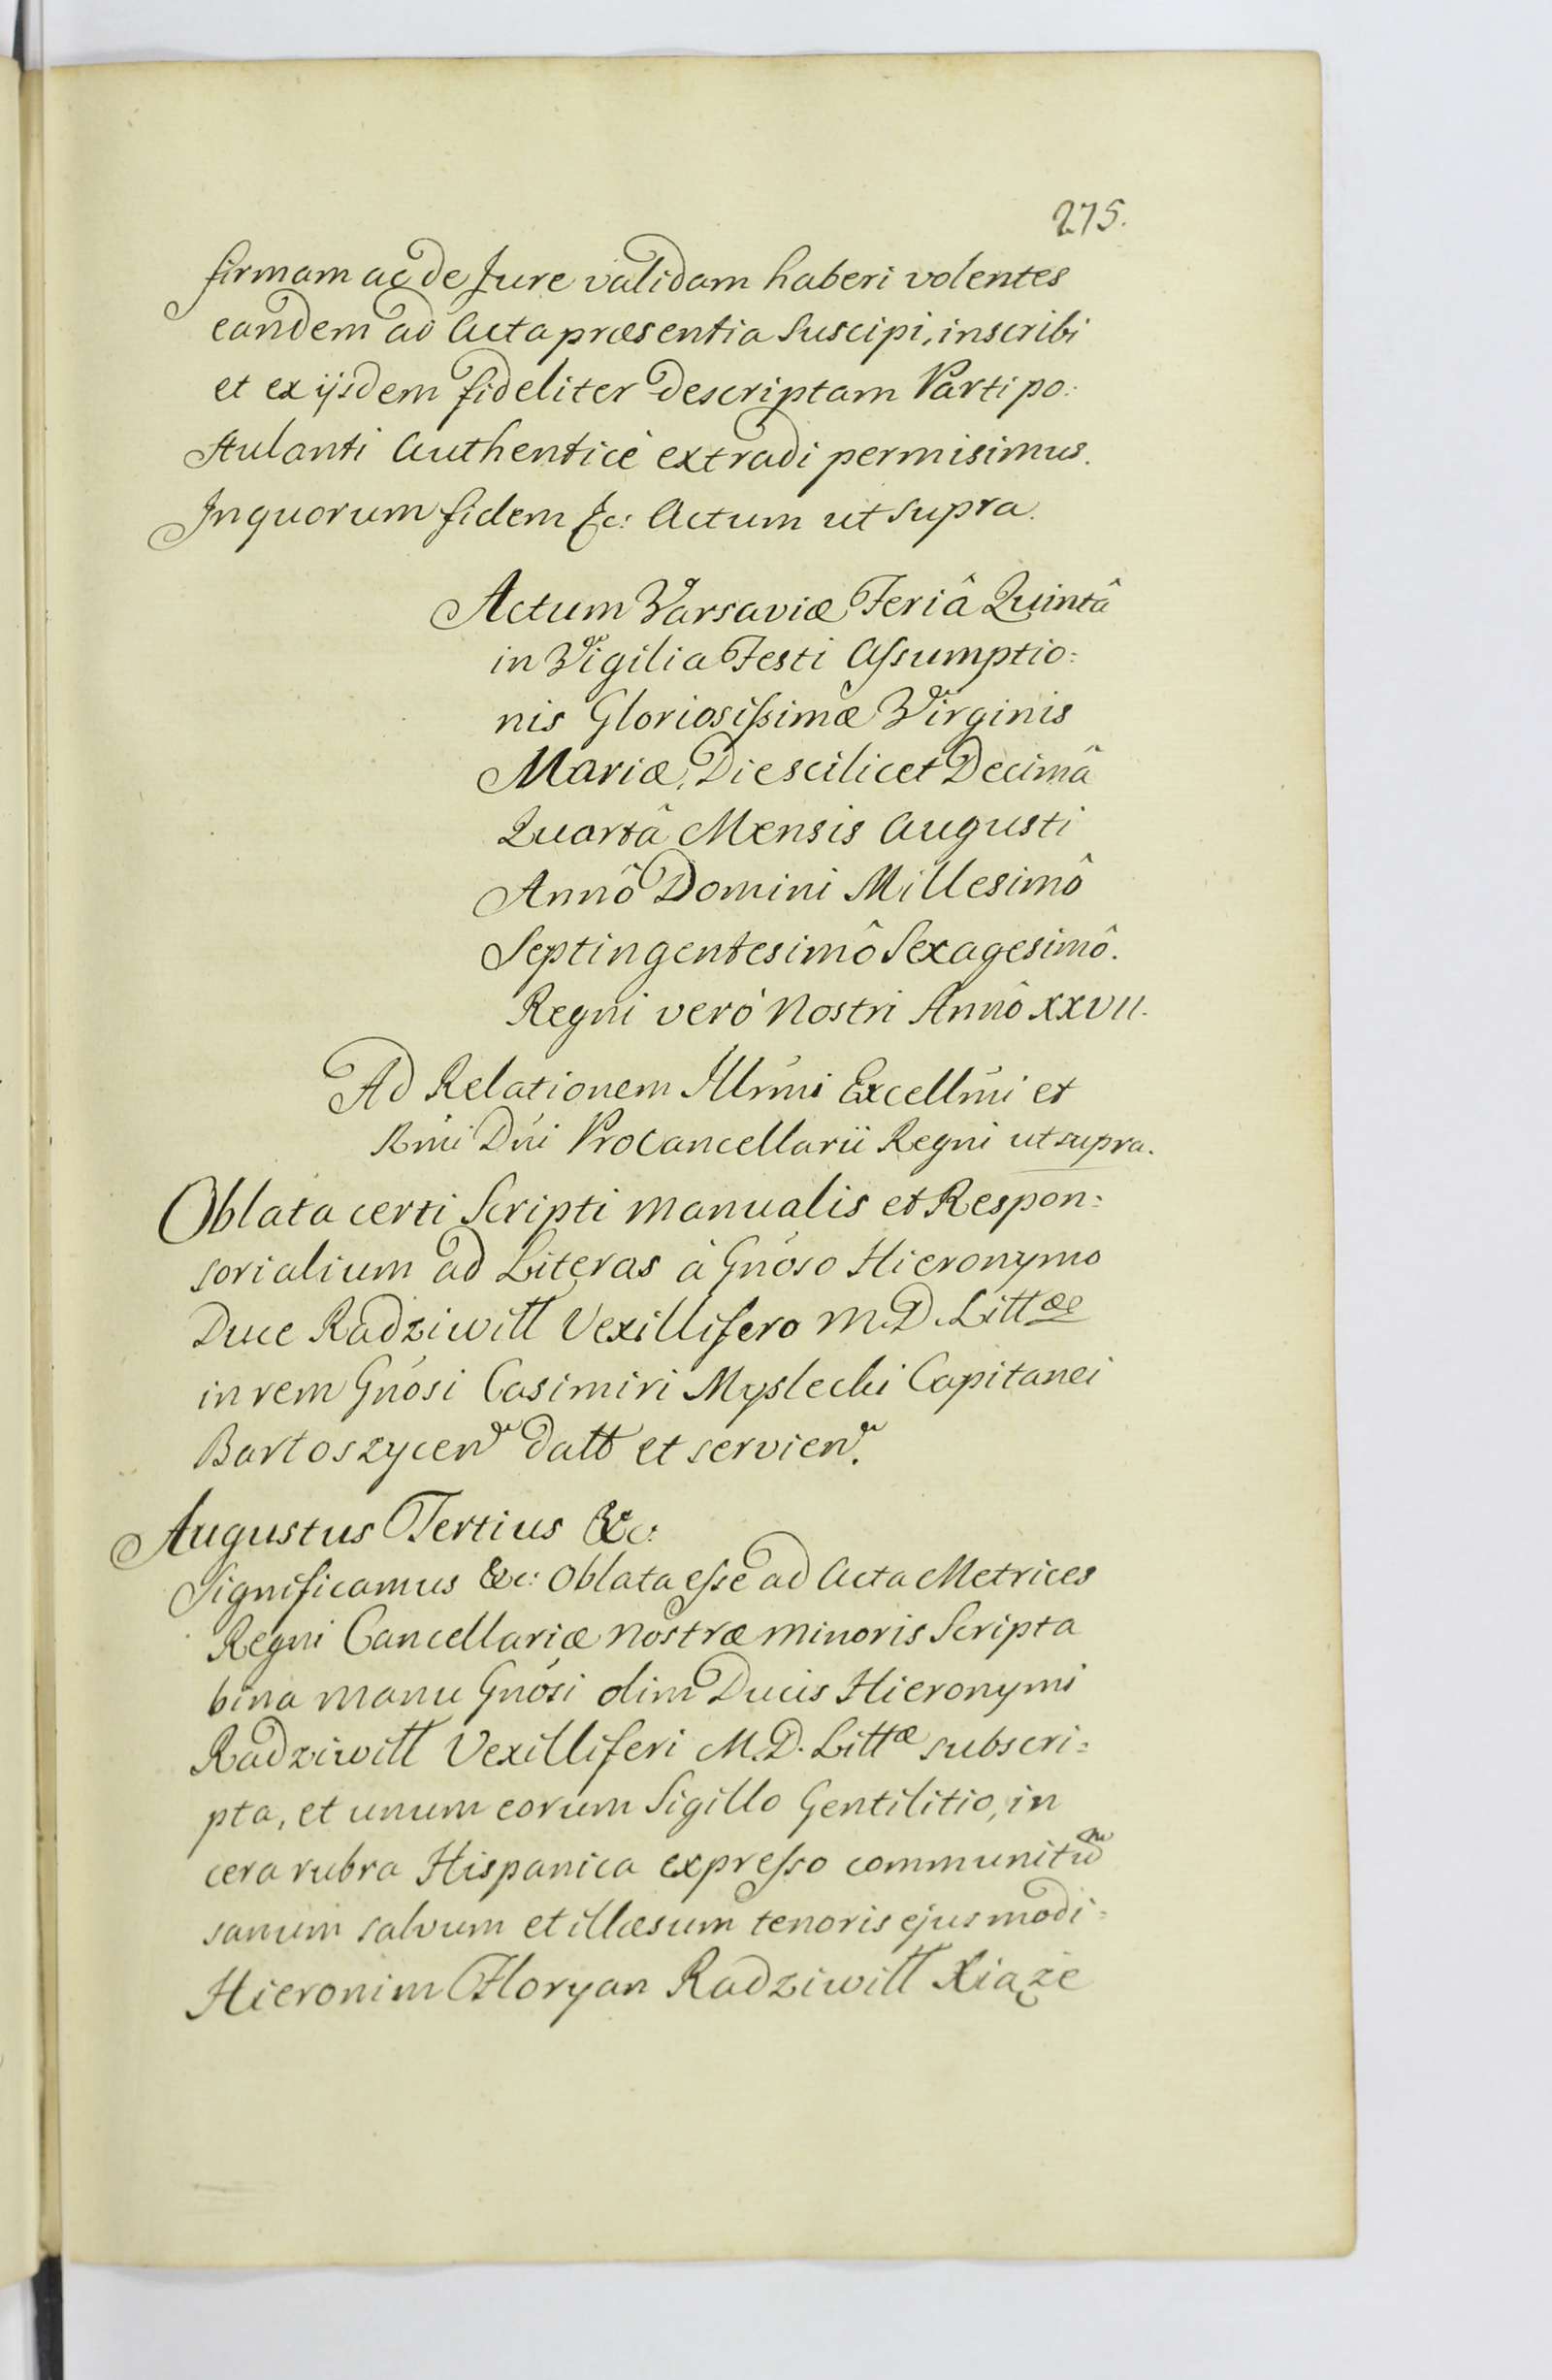 275.
firmam ac de Jure validam haberi volentes
eandem ad Acta præsentia Suscipi, inscribi
et ex ijsdem fideliter descriptam Parti po:
stulanti Authenticè extradi permisimus.
In quorum fidem &c: Actum ut supra.
Actum Varsaviæ Feriâ Quintâ
in Vigilia Festi Assumptio:
nis Gloriosissimæ Virginis
Mariæ, Die scilicet Decimâ
Quartâ Mensis Augusti
Annô Domini Millesimô
Septingentesimô Sexagesimô.
Regni verò Nostri Annô XXVII.
Ad Relationem Illmi Excellmi et
Rmi Dni ProCancellarii Regni ut supra.
Oblata certi Scripti manualis et Respon:
sorialium ad Literas à Gnoso Hieronymo
Duce Radziwiłł Vexillifero M.D. Littæ
in rem Gnosi Casimiri Myslecki Capitanei
Bartoszycen datt et servien.
Augustus Tertius &c:
Significamus &c: Oblata esse ad Acta Metrices
Regni Cancellariæ Nostræ minoris Scripta
bina manu Gnosi olim Ducis Hieronymi
Radziwiłł Vexilliferi M.D. Littæ subscri:
pta, et unum eorum Sigillo Gentilitio, in
cera rubra Hispanica expresso communitum
sanum salvum et illæsum tenoris ejusmodi:
Hieronim Floryan Radziwiłł Xiąże